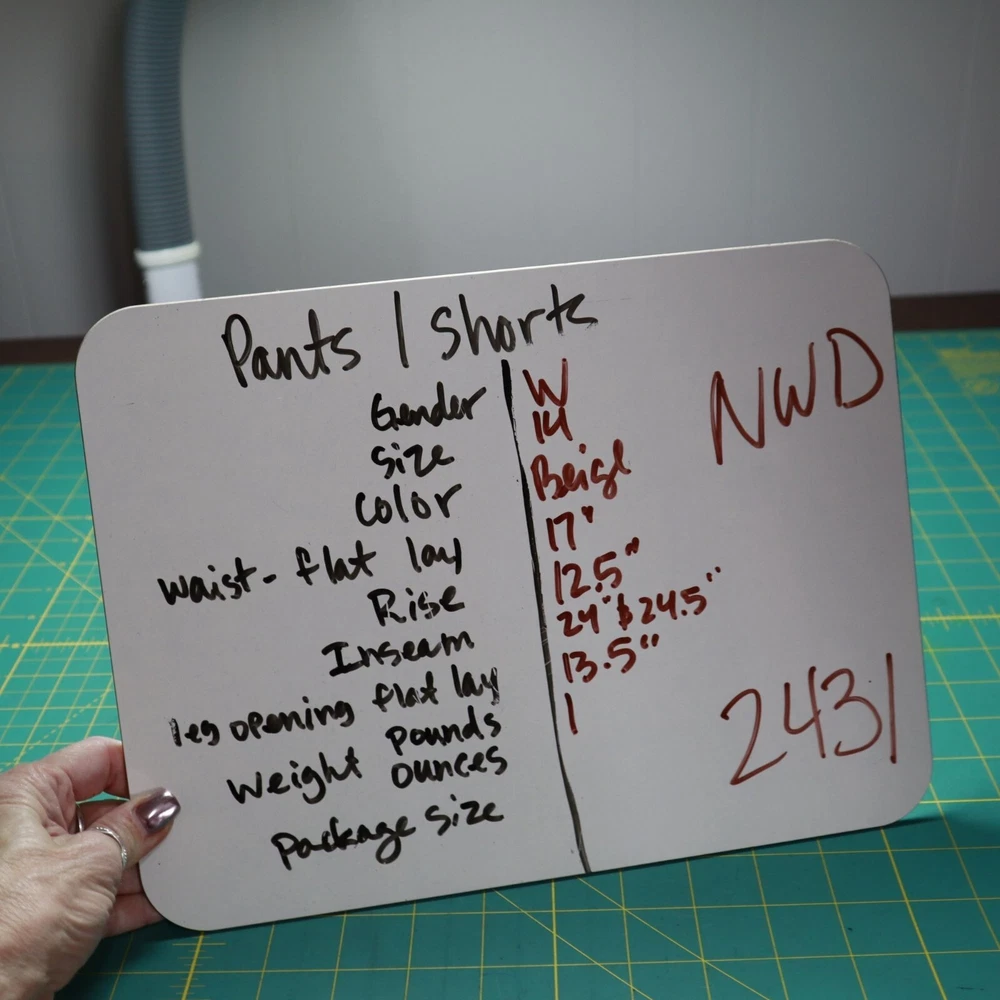 Pants / shorts
Gender W
Size 14
Color Beige
waist- flat lay 17"
Rise 12.5"
Inseam 24" & 24.5"
leg opening flat lay 13.5"
Weight pounds 1
ounces
package size
NWD
2431